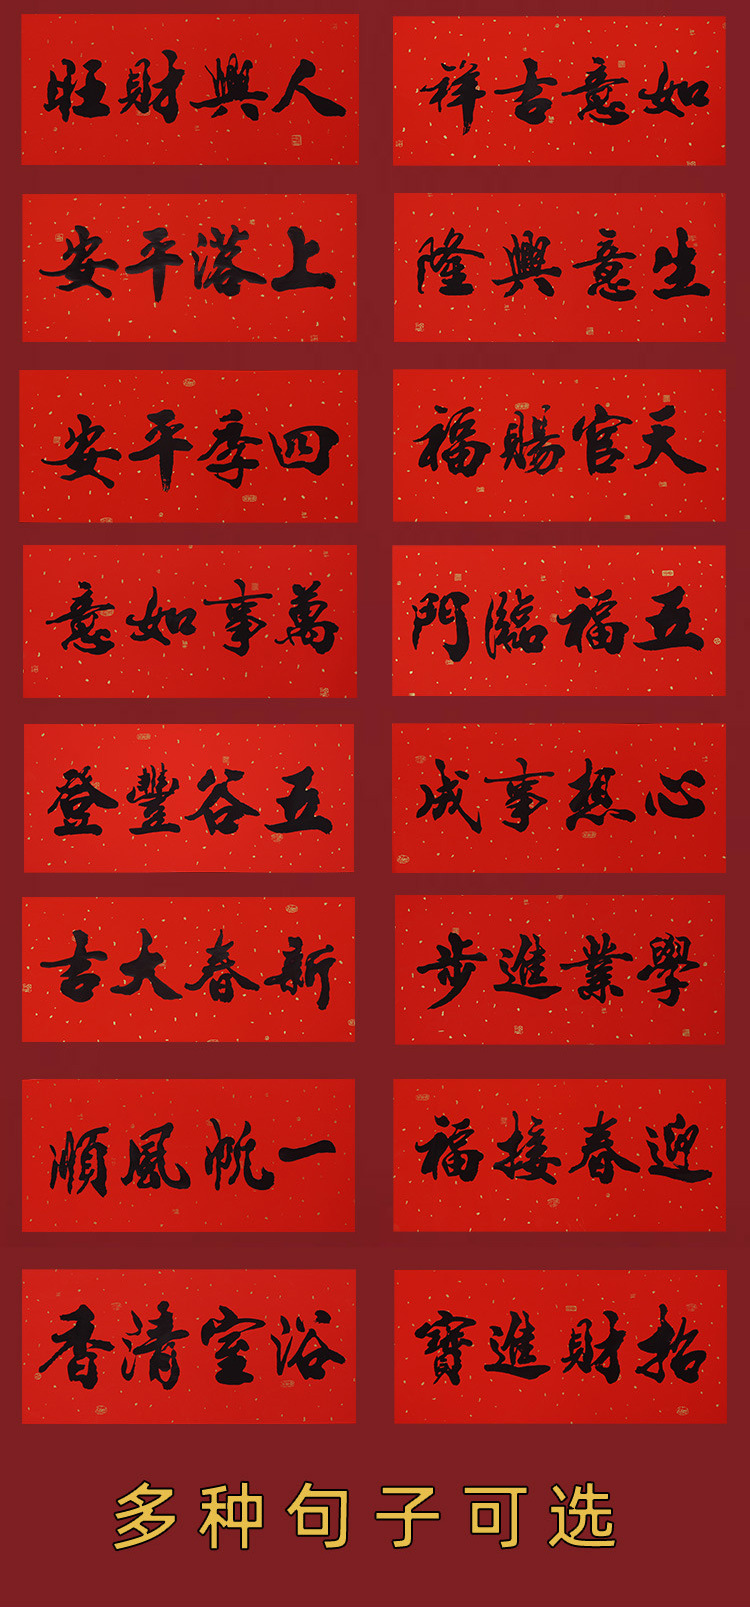 人興財旺
如意吉祥
上落平安
生意興隆
四季平安
天官賜福
萬事如意
五福臨門
五谷豐登
心想事成
新春大吉
學業進步
一帆風順
迎春接福
浴室清香
招財進寶
多种句子可选